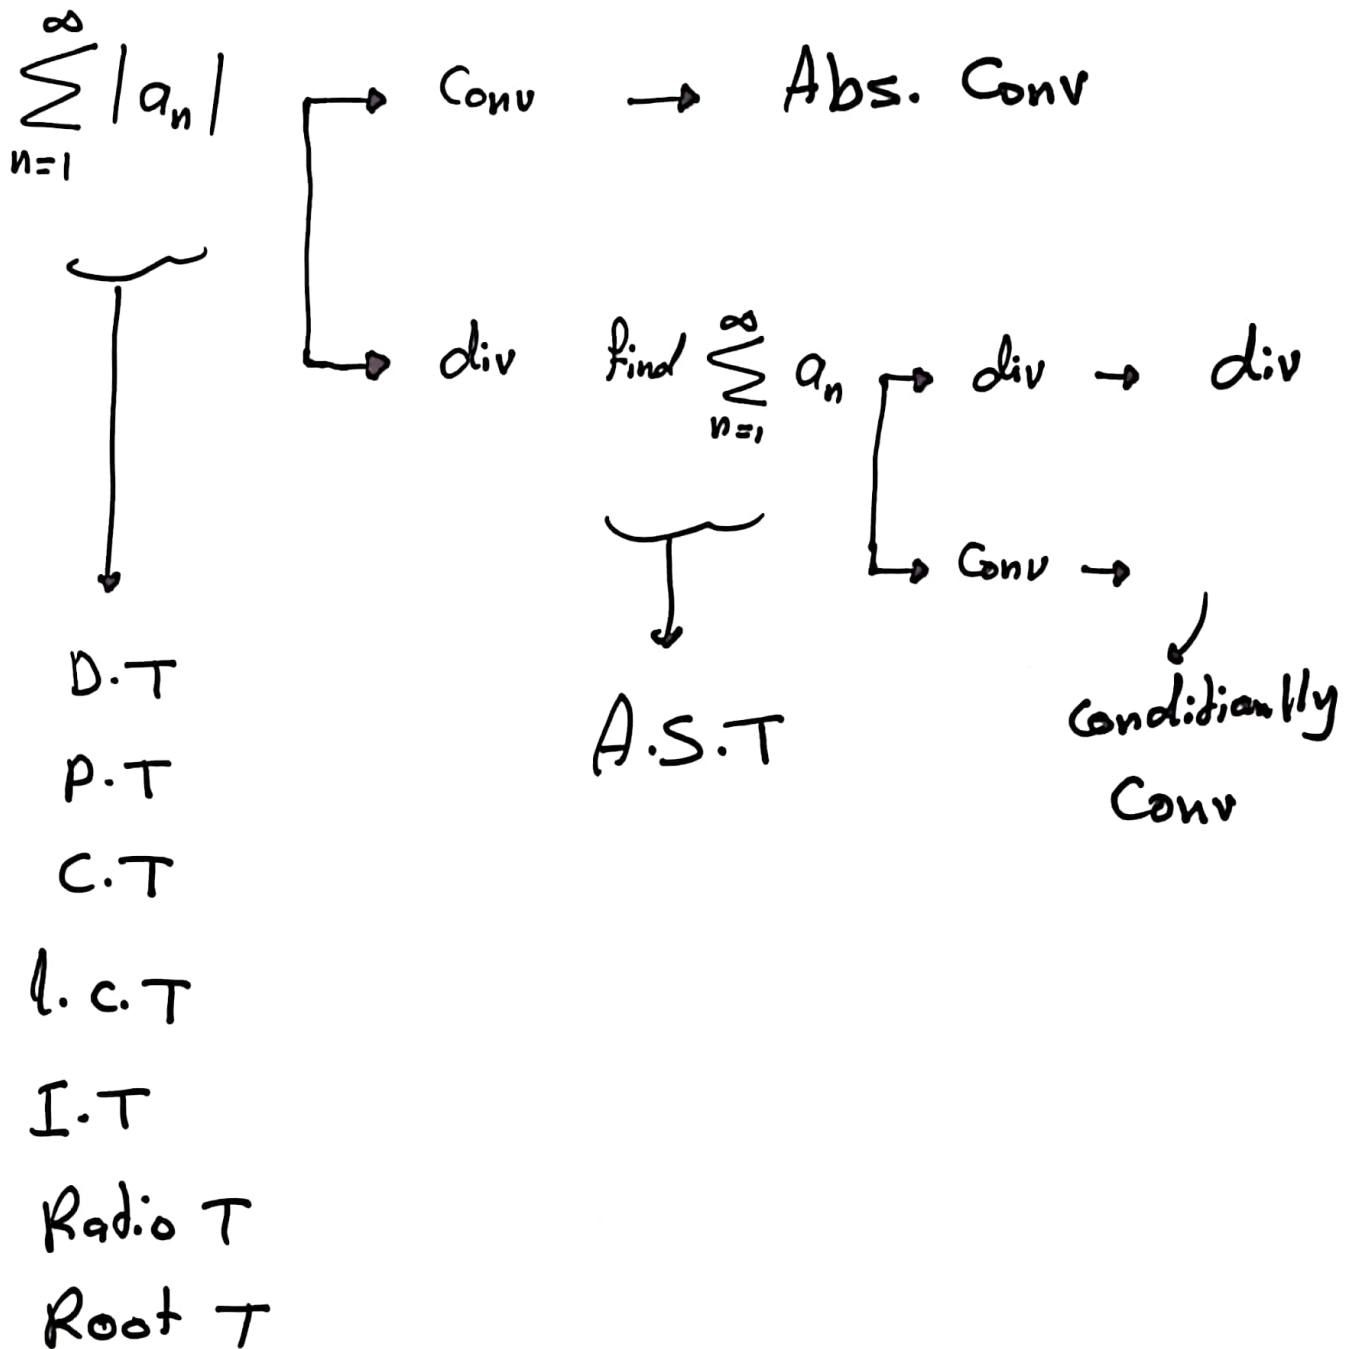 ∞
∑ |aₙ| → Conv → Abs. Conv
n=1
→ div find ∑ aₙ → div → div
∞
n=1
→ Conv →
Conditianlly
Conv
A.S.T
D.T
P.T
C.T
l.C.T
I.T
Radio T
Root T